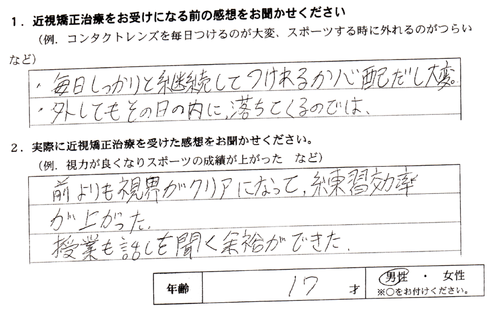 1．近視矯正治療をお受けになる前の感想をお聞かせください
（例．コンタクトレンズを毎日つけるのが大変、スポーツする時に外れるのがつらい
など）
・毎日しっかりと継続してつけれるか心配だし大変。
・外してもその日の内に、落ちてくるのでは、
2．実際に近視矯正治療を受けた感想をお聞かせください。
（例．視力が良くなりスポーツの成績が上がった など）
前よりも視界がクリアになって、練習効率
が上がった．
授業も話しを聞く余裕ができた．
年齢 17 才 男性 ・ 女性
※○をお付けください。